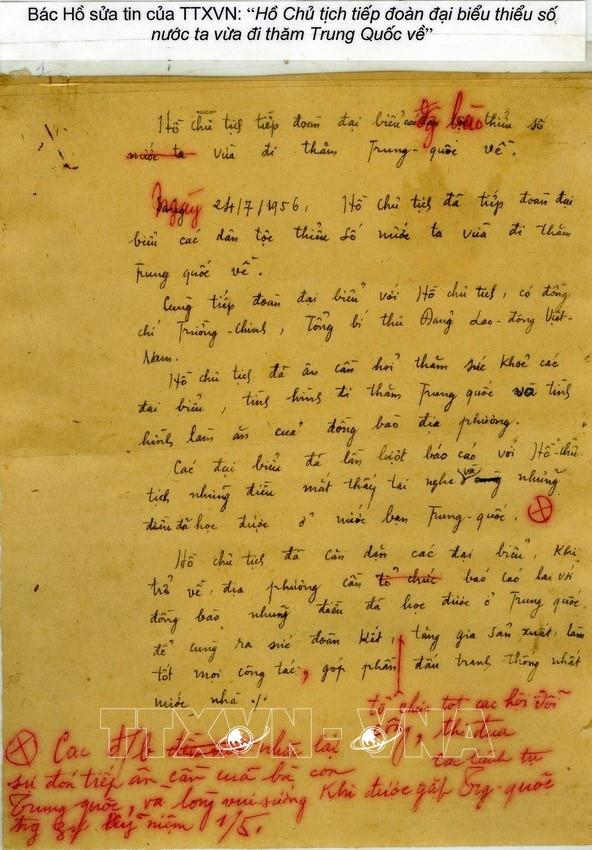 Bác Hồ sửa tin của TTXVN: “Hồ Chủ tịch tiếp đoàn đại biểu thiểu số
nước ta vừa đi thăm Trung Quốc về”
Hồ chủ tịch tiếp đoàn đại biểu đg bào thiểu số
nước ta vừa đi thăm Trung-quốc về.
Ngày 24/7/1956, Hồ chủ tịch đã tiếp đoàn đại
biểu các dân tộc thiểu số nước ta vừa đi thăm
Trung quốc về.
Cùng tiếp đoàn đại biểu với Hồ chủ tịch, có đồng
chí Trường-chinh, Tổng bí thư Đảng Lao-động Việt-
Nam.
Hồ chủ tịch đã ân cần hỏi thăm sức khoẻ các
đại biểu, tình hình đi thăm Trung quốc và tình
hình làm ăn của đồng bào địa phương.
Các đại biểu đã lần lượt báo cáo với Hồ-chủ-
tịch những điều mắt thấy tai nghe và những
điều đã học được ở nước bạn Trung-quốc.
Hồ chủ tịch đã căn dặn các đại biểu, khi
trở về địa phương cần tổ chức báo cáo lại với
đồng bào những điều đã học được ở Trung quốc,
để cùng ra sức đoàn kết, tăng gia sản xuất, làm
tốt mọi công tác, góp phần đấu tranh thống nhất
nước nhà ./.
tổ chức tốt các hội đổi
công, thi đua
TTXVN - VNA
Các đ/b
sự đón tiếp ân cần của bà con
Trung quốc, và lòng vui sướng khi được gặp
kỷ niệm 1/5.